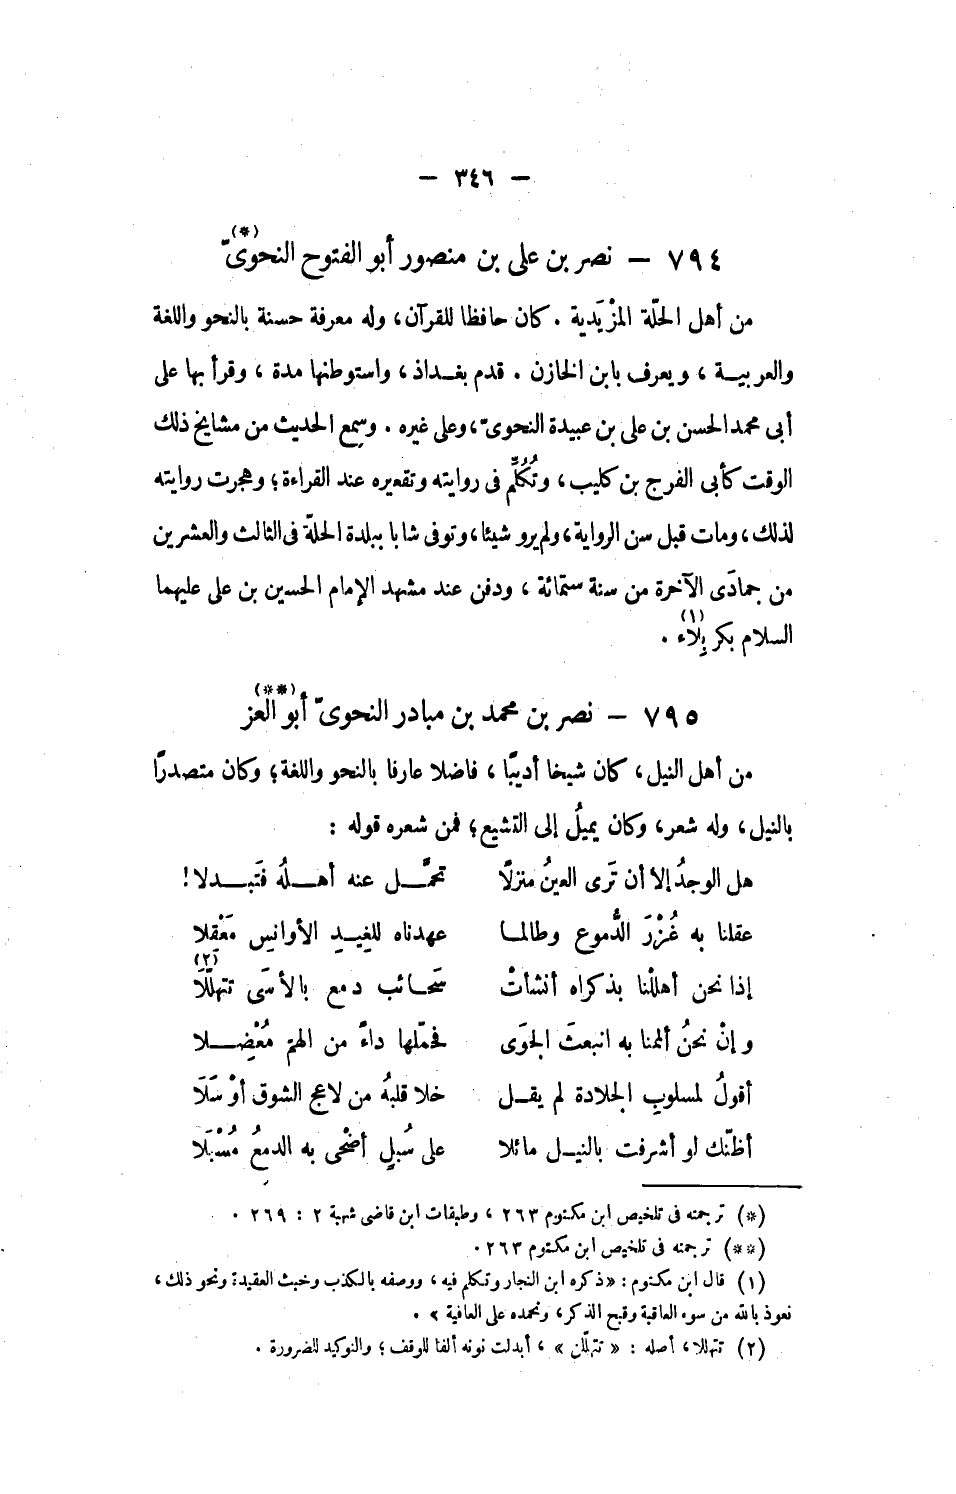 — ٣٤٦ —
٧٩٤ — نصر بن على بن منصور أبو الفتوح النحوىّ (*)
من أهل الحلّة المزْيَدية . كان حافظا للقرآن، وله معرفة حسنة بالنحو واللغة
والعربيـة ، ويعرف بابن الخازن . قدم بغـداذ ، واستوطنها مدة ، وقرأ بها على
أبى محمد الحسن بن على بن عبيدة النحوىّ، وعلى غيره . وسمِع الحديث من مشايخ ذلك
الوقت كأبى الفرج بن كليب، وتُكُلِّم فى روايته وتقعيره عند القراءة؛ وهجرت روايته
لذلك، ومات قبل سن الرواية، ولم يرو شيئا، وتوفى شابا ببلدة الحلّة فى الثالث والعشرين
من جمادَى الآخرة من سنة ستمائة ، ودفن عند مشهد الإمام الحسين بن على عليهما
السلام بكربِلاء (١) .
٧٩٥ — نصر بن محمد بن مبادر النحوىّ أبو العز (**)
من أهل النيل، كان شيخا أديبًا ، فاضلا عارفا بالنحو واللغة؛ وكان متصدرًا
بالنيل، وله شعر، وكان يميلُ إلى التشيع؛ فمن شعره قوله :
هل الوجدُ إلا أن تَرى العينُ منزلًا تحمَّـل عنه أهـلُه فتَبـدلا!
عقلنا به غُزْرَ الدُّموع وطالمـا عهدناه للغِيـدِ الأوانِسِ مَعْقِلا
إذا نحن أهللْنا بذكراه أنشأتْ سَحَـائب دمع بالأسَى تتهلّلَا (٢)
وإنْ نحنُ ألممنا به انبعثَ الجوَى فحمّلها داءً من الهمّ مُعْضِـلا
أقولُ لمسلوبِ الجلادة لم يقـل خلا قلبهُ من لاعج الشوق أوْ سَلَا
أظنّك لو أشرفت بالنيـل مائلا على سُبلٍ أضْحى به الدمعُ مُسْبَلَا
(*) ترجمته فى تلخيص ابن مكتوم ٢٦٣ ، وطبقات ابن قاضى شهبة ٢ : ٢٦٩ .
(**) ترجمته فى تلخيص ابن مكتوم ٢٦٣ .
(١) قال ابن مكتوم : «ذكره ابن النجار وتكلم فيه ، ووصفه بالكذب وخبث العقيدة ونحو ذلك ،
نعوذ بالله من سوء العاقبة وقبح الذكر، ونحمده على العافية » .
(٢) تتهللا، أصله : « تتهلّلن » ، أبدلت نونه ألفا للوقف ؛ والتوكيد للضرورة .